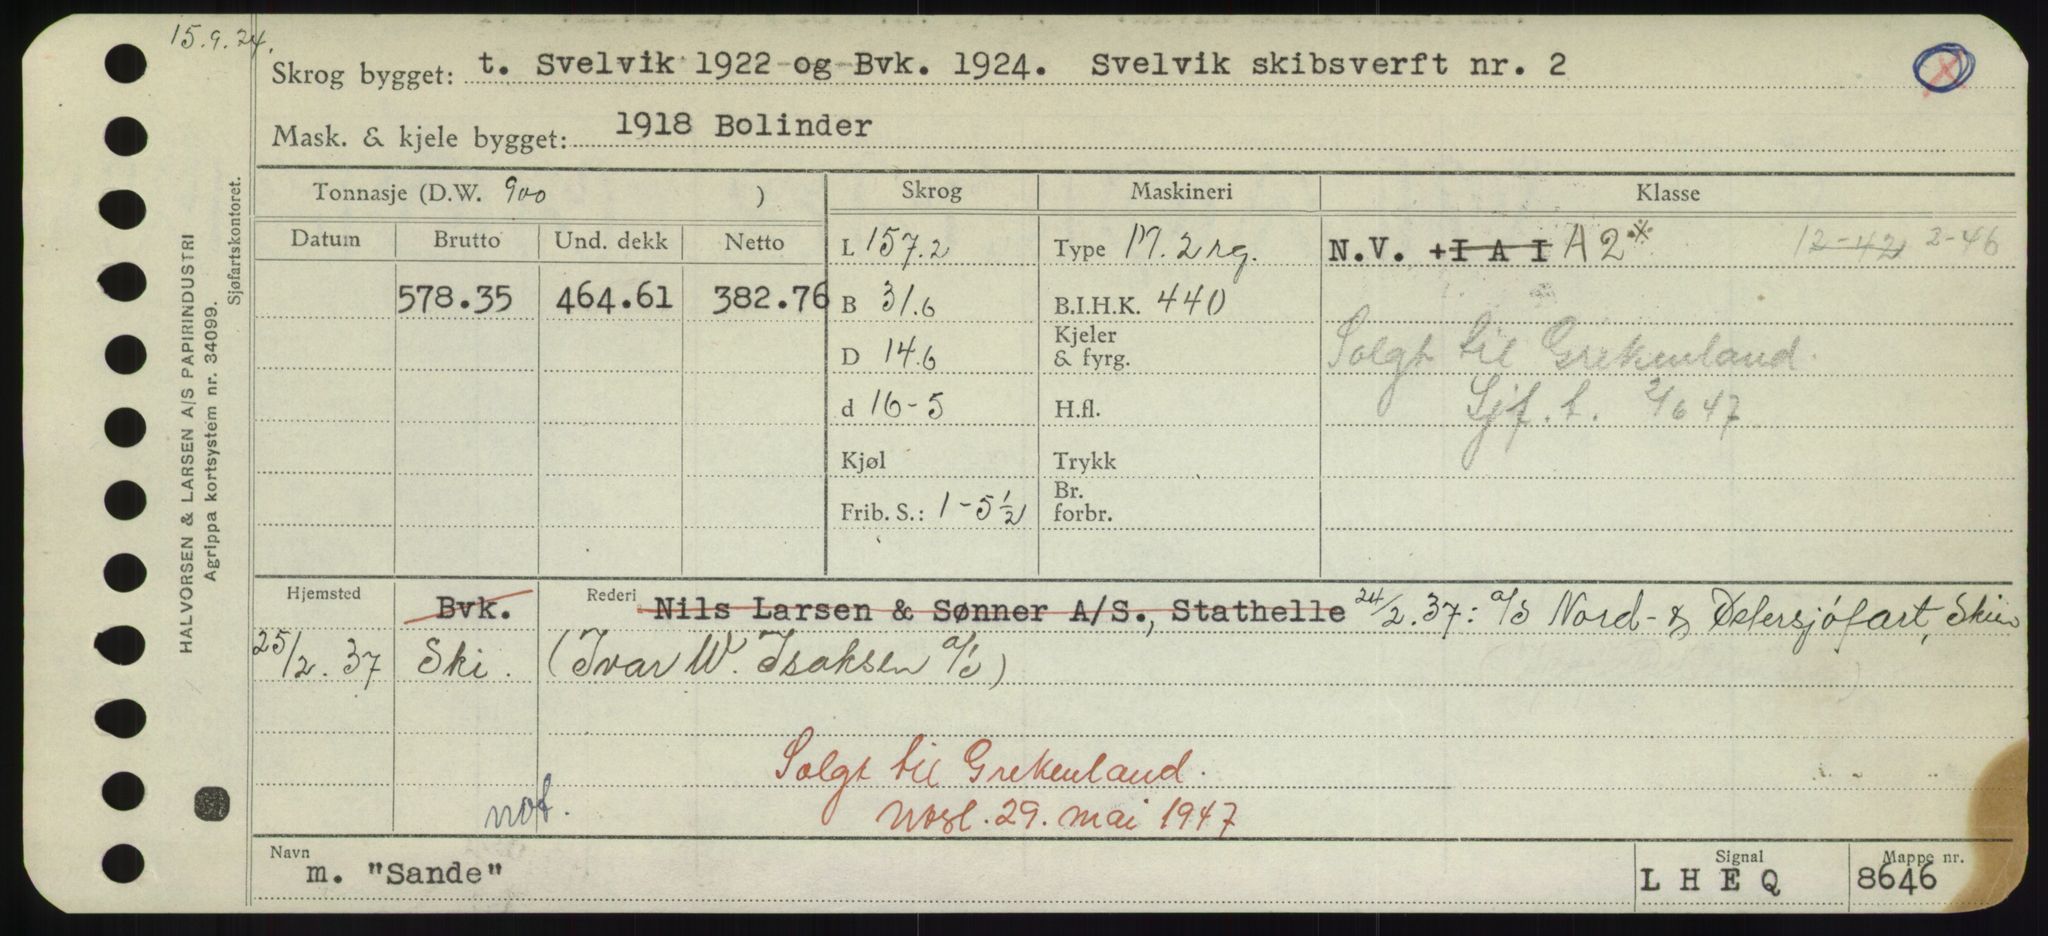 15.9.24.
Skrog bygget: t. Svelvik 1922 og Bvk. 1924. Svelvik skibsverft nr. 2
Mask. & kjele bygget: 1918 Bolinder
Tonnasje (D.W. 900 ) Skrog Maskineri Klasse
Datum Brutto Und. dekk Netto L 157.2 Type M. 2 rg. N.V. +I A I A 2※ 12-42 2-46
578.35 464.61 382.76 B 31.6 B.I.H.K. 440
D 14.6 Kjeler & fyrg. Solgt til Grekenland.
d 16-5 H.fl. Sjf. t. 2/6 47
Kjøl Trykk
Frib. S.: 1-5½ Br. forbr.
Hjemsted Bvk. Rederi Nils Larsen & Sønner A/S., Stathelle 24/2.37: a/s Nord- & Østersjøfart, Skien
25/2.37 Ski. (Ivar W. Isaksen a/s)
Solgt til Grekenland.
not. Nosl. 29. mai 1947
Navn m. "Sande" Signal L H E Q Mappe nr. 8646
HALVORSEN & LARSEN A/S PAPIRINDUSTRI
Agrippa kortsystem nr. 34099.
Sjøfartskontoret.